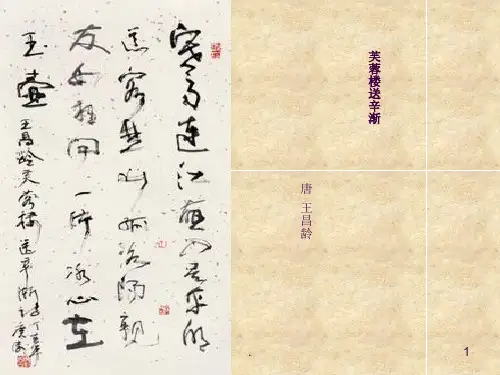 寒雨连江夜入吴平明
送客楚山孤洛阳亲
友如相问一片冰心在
玉壶 王昌龄芙蓉楼送辛渐
芙蓉楼送辛渐
唐 王昌龄
1